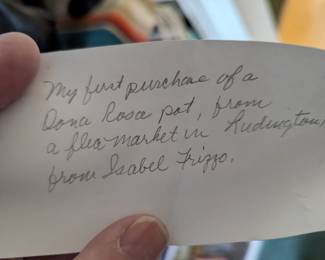 My first purchase of a
Dona Rosa pot, from
a flea market in Ludington,
from Isabel Frizzo.